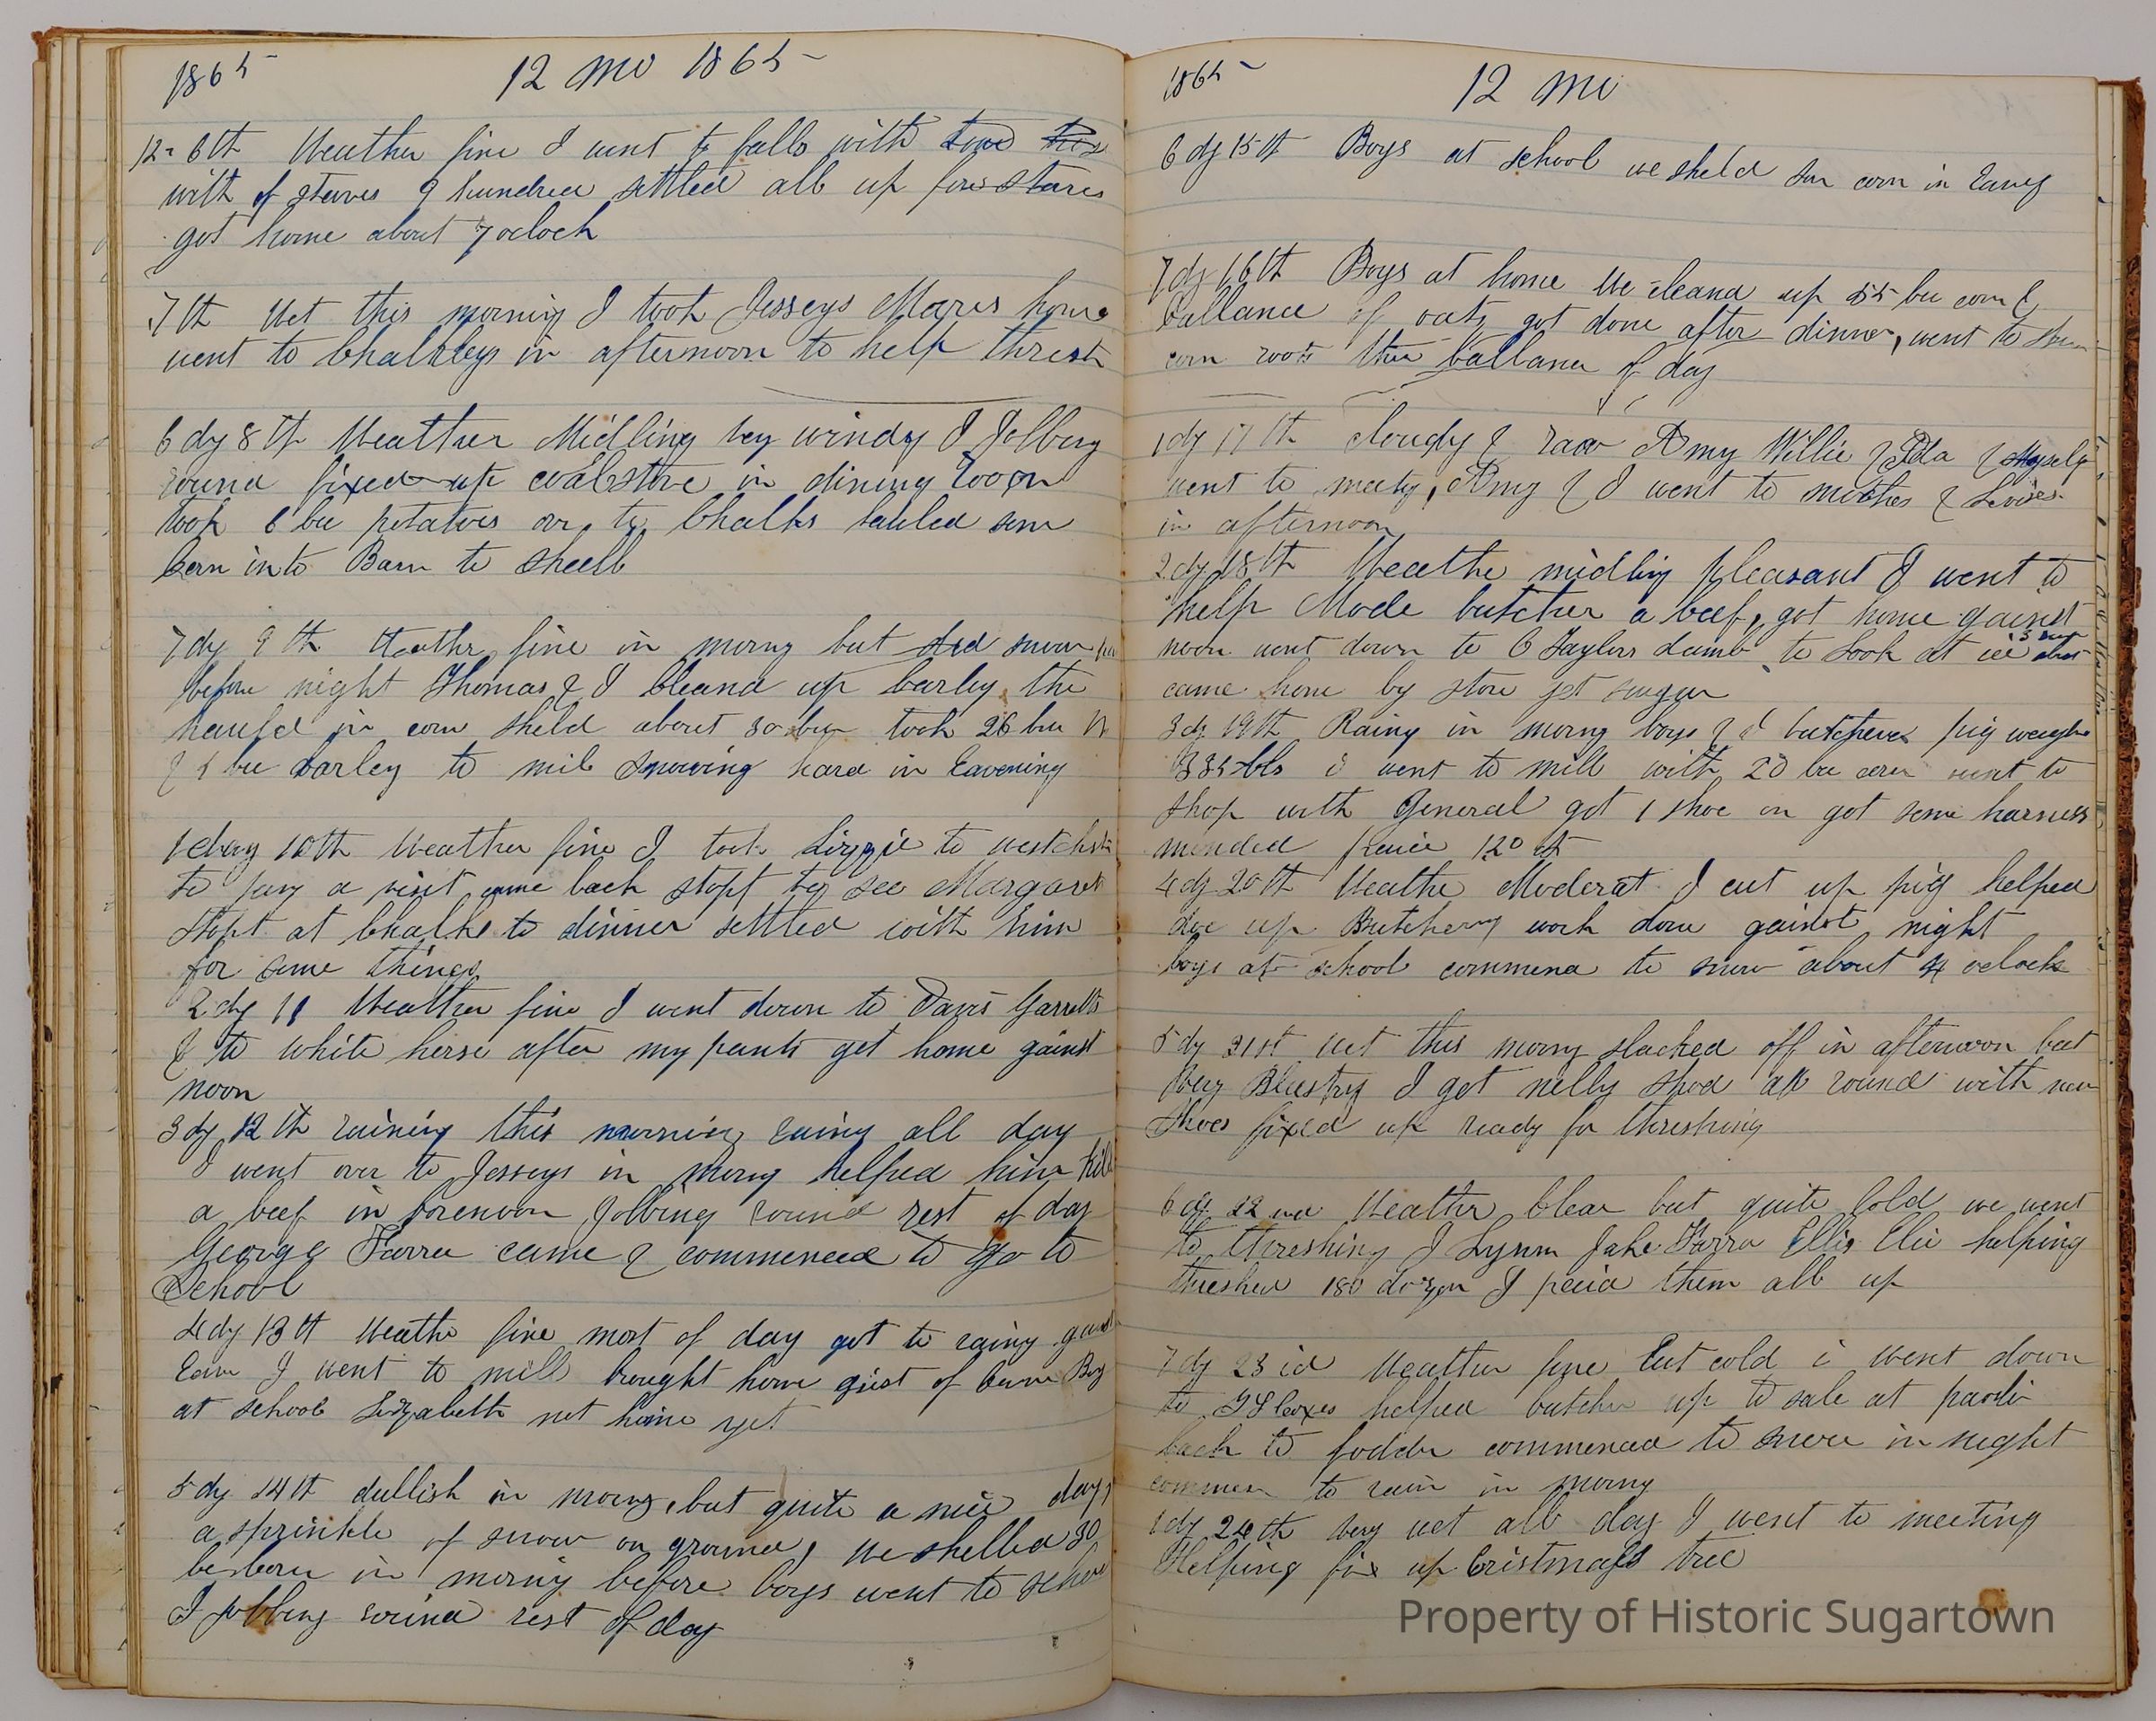 1865
12 mo 1865
12 - 6th Weather fine I went to falls with
with of staves 9 hundred settled all up for staves
got home about 7 oclock
7th Wet this morning I took Jesseys Mares home
went to Chalkleys in afternoon to help thresh
6 dy 8th Weather Midling very windy I Jolbing
round fixed up coalstove in dining room
took 6 bu potatoes over to Chalks hauled som
Corn into Barn to Sheell
7 dy 9th Weather fine in morng but did snow
before night Thomas & I Cleand up barley the
hauld in corn sheld about 30 bu took 26 bu
& 1 bu barley to mil Snowing hard in Eavening
1 day 10th Weather fine I took Lizzie to westchst
to pay a visit came back stopt to see Margaret
Stopt at Chalks to dinner settled with him
for some things
2 dy 11 Weather fine I went down to Davis Garretts
& to White herse after my pants get home gainst
noon
3 dy 12th raining this morning raing all day
I went over to Jesseys in morng helped him kill
a beef in forenoon Jolbing round rest of day
George Farra came & commenced to go to
School
4 dy 13th Weathe fine most of day got to raing
Eavn I went to mill braught home grist of Corn Boy
at school Lizabeth not home yet
5 dy 14th dullish in morng, but quite a nice day,
a sprinkle of snow on ground, we shelled 30
bu corn in morning before boys went to school
I Jobbing round rest of day
1865
12 mo
6 dy 15th Boys at school we sheld som corn in Eavng
7 dy 16th Boys at home We cleand up 55 bu corn &
ballance of oats got done after dinner, went to
corn roots the ballance of day
1 dy 17th Cloudy & raw Amy Willie & Ida & Myself
went to meetg, Amy & I went to mothes & Levises
in afternoon
2 dy 18th Weathe midling pleasant I went to
help Mode butcher a beef, got home gainst
noon went down to C Taylors Lamb to Look at ice
came home by store get sugar
3 dy 19th Rainy in morng boys & I butchered pig weighe
335 lbs I went to mill with 20 bu corn went to
shop with General got 1 shoe on got some harness
mended paid 120 ct
4 dy 20th Weathe Moderat I cut up pig helped
doe up Butcherng work done gainst night
boys at school commencd to snow about 4 oclock
5 dy 21st Wet this morng slacked off in afternoon but
Very Blustry I got nelly shod all round with new
Shoes fixed up ready for threshing
6 dy 22nd Weather Clear but quite Cold we went
to threshing J Lynnn Jake Farra Ellis Elie helping
threshed 180 dozen I paid them all up
7 dy 23id Weather fine but cold i went down
to helped butcher up to sale at paoli
back to fodder commenced to snow in night
commen to rain in morng
1 dy 24th Very wet all day I went to meeting
Helping fix up Cristmass tree
Property of Historic Sugartown